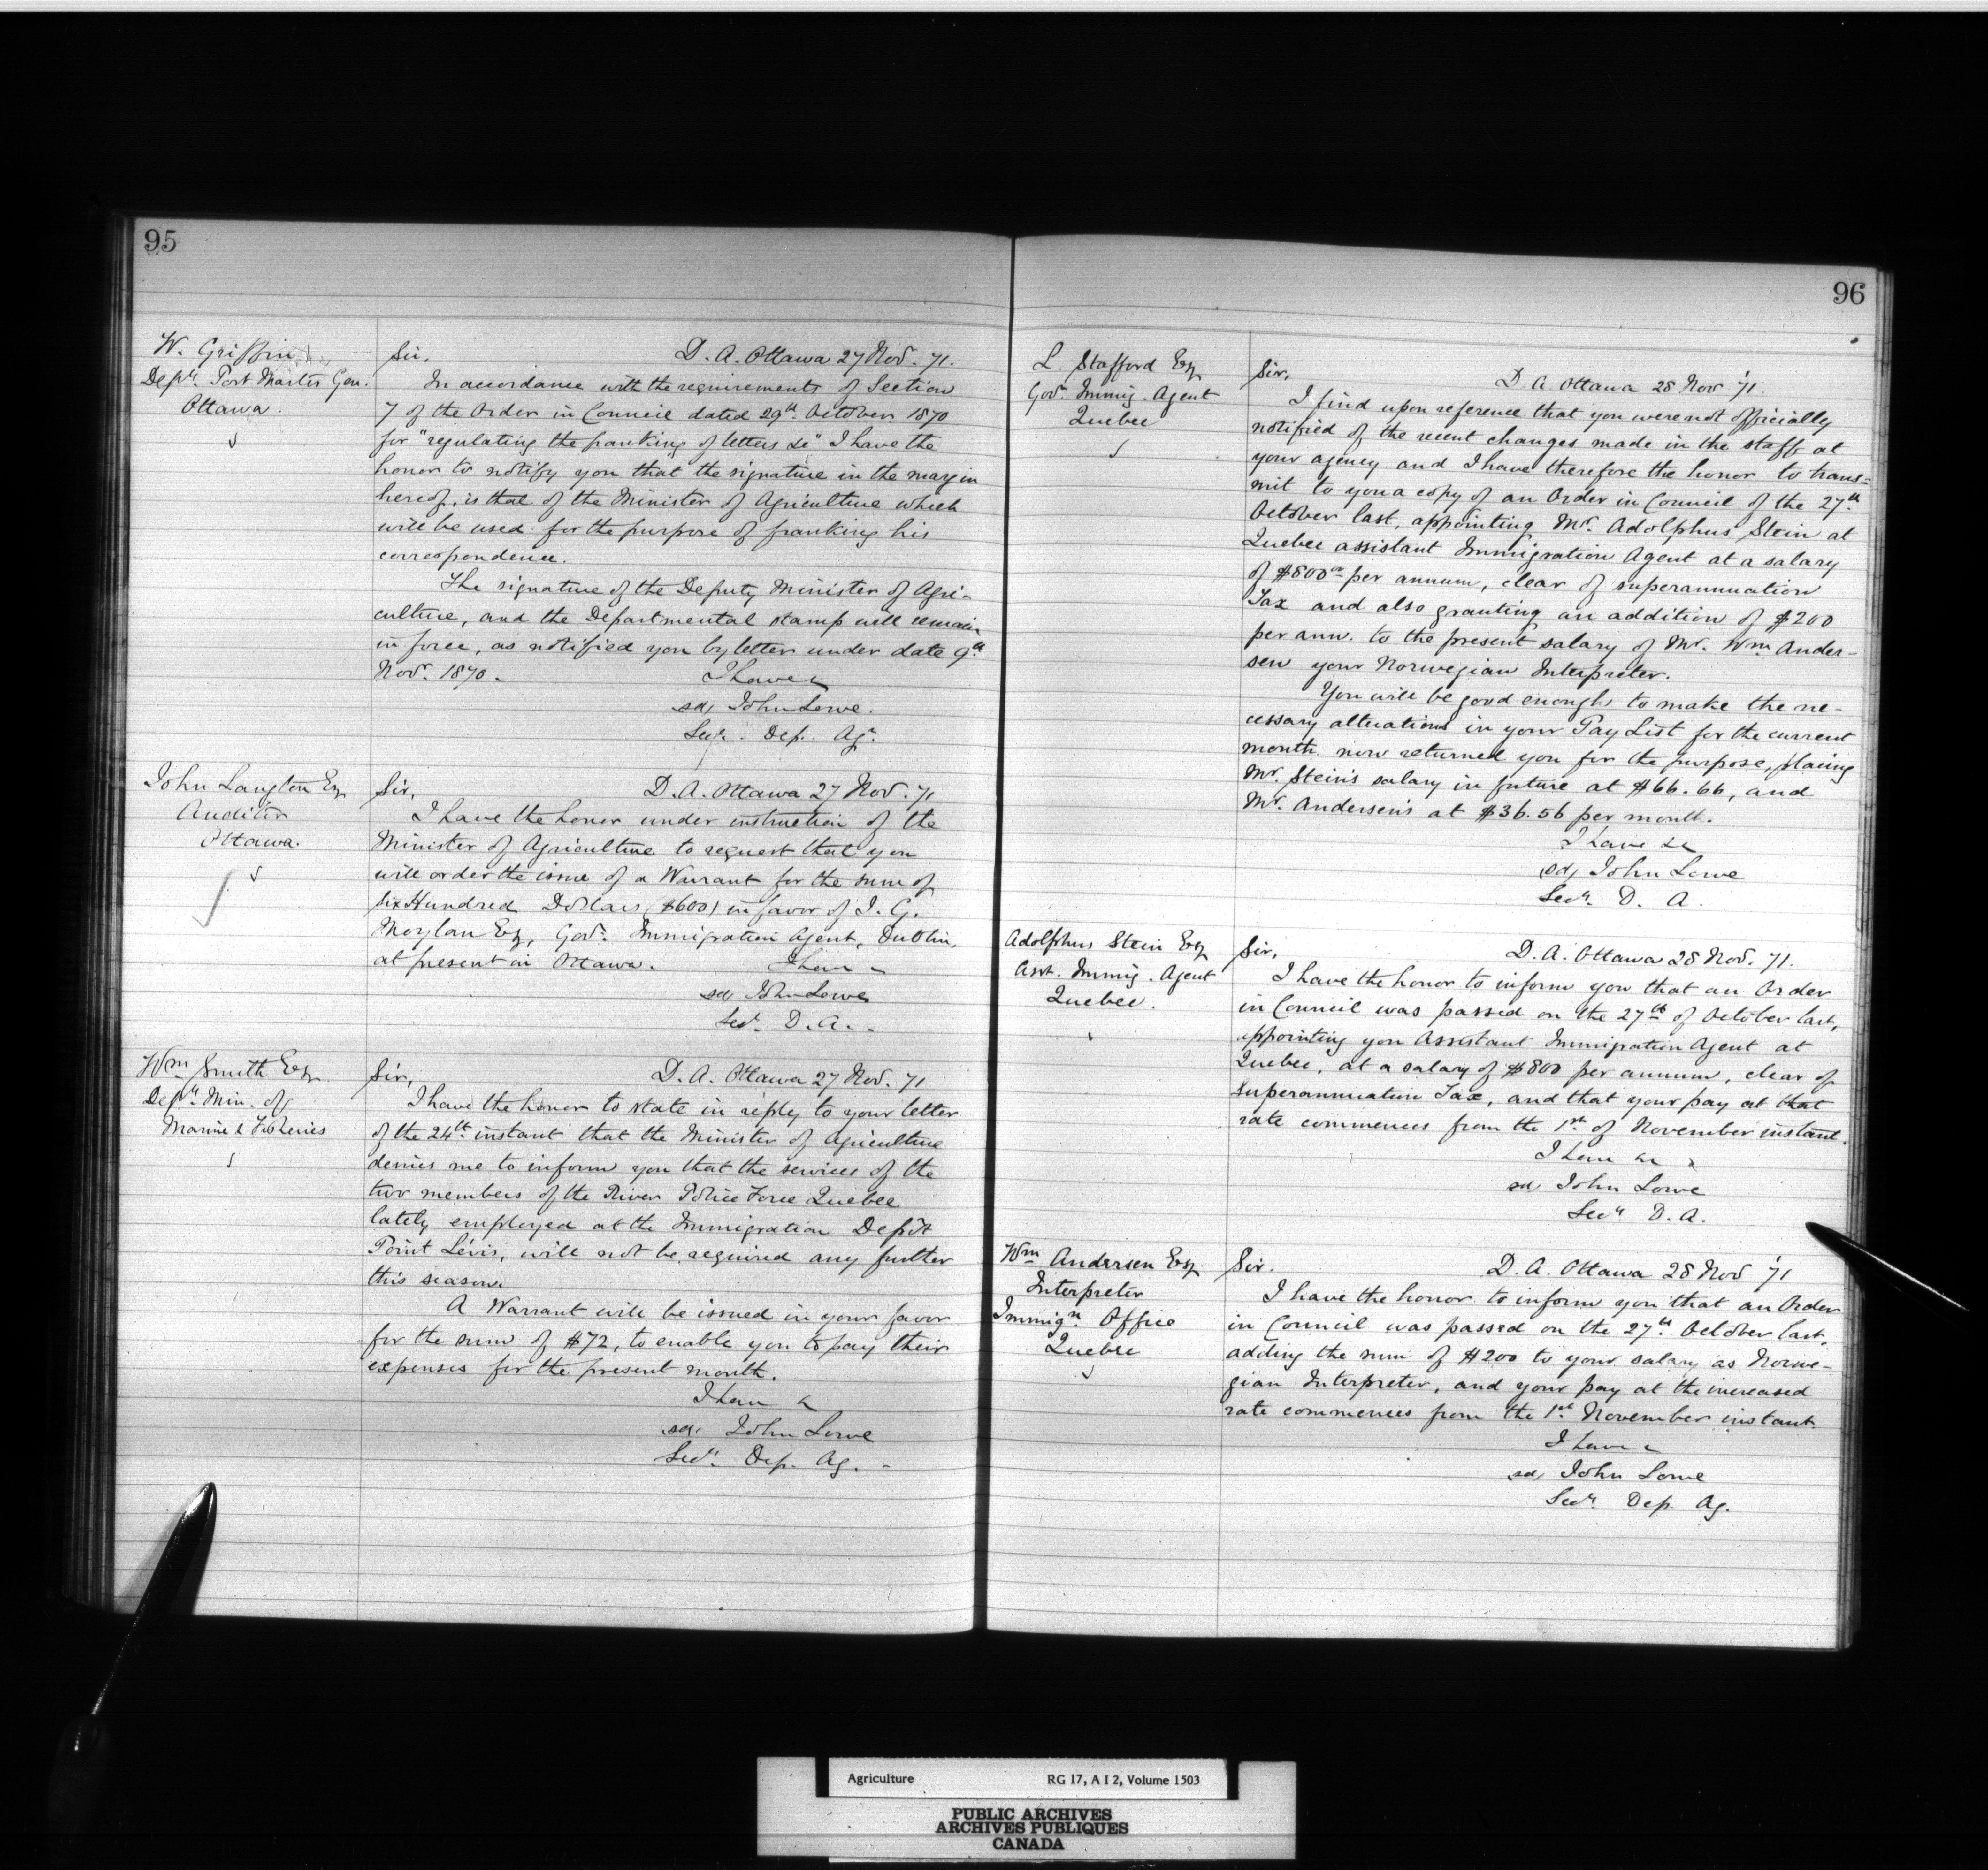 95
W. Griffin
Depy. Post Master Gen.
Ottawa.
Sir, D. A. Ottawa 27 Nov. 71.
In accordance with the requirements of Section
7 of the Order in Council dated 29th October 1870
for "regulating the franking of letters &c" I have the
honor to notify you that the signature in the margin
hereof, is that of the Minister of Agriculture which
will be used for the purpose of franking his
correspondence.
The signature of the Deputy Minister of Agri-
culture, and the Departmental stamp will remain
in force, as notified you by letter under date 9th
Novr. 1870. I have &
sd, John Lowe.
Secy. Dep. Agr.
John Langton Esq
Auditor
Ottawa.
Sir, D. A. Ottawa 27 Nov. 71
I have the honor under instruction of the
Minister of Agriculture to request that you
will order the issue of a Warrant for the sum of
Six Hundred Dollars ($600) in favor of J. G.
Moylan Esq, Govt. Immigration Agent, Dublin,
at present in Ottawa. I have &
sd John Lowe
Secy. D. A.
Wm Smith Esq
Depy. Min. of
Marine & Fisheries
Sir, D. A. Ottawa 27 Nov. 71
I have the honor to state in reply to your letter
of the 24th instant that the Minister of Agriculture
desires me to inform you that the services of the
two members of the River Police Force Quebec
lately employed at the Immigration Depôt
Point Lévis, will not be required any further
this season.
A Warrant will be issued in your favor
for the sum of $72, to enable you to pay their
expenses for the present month.
I have &
sd, John Lowe
Secy. Dep. Ag.
96
L. Stafford Esq
Govt. Immig. Agent
Quebec
Sir, D. A. Ottawa 28 Nov. '71.
I find upon reference that you were not officially
notified of the recent changes made in the staff at
your agency and I have therefore the honor to trans=
mit to you a copy of an Order in Council of the 27th
October last, appointing Mr. Adolphus Stein at
Quebec assistant Immigration Agent at a salary
of $800 00 per annum, clear of superannuation
Tax and also granting an addition of $200
per ann. to the present salary of Mr. Wm Ander-
sen your Norwegian Interpreter.
You will be good enough to make the ne-
cessary alterations in your Pay List for the current
month now returned you for the purpose, placing
Mr. Stein's salary in future at $66.66, and
Mr. Andersen's at $36.56 per month.
I have &c
sd, John Lowe
Secy. D. A.
Adolphus Stein Esq
Asst. Immig. Agent
Quebec.
Sir, D. A. Ottawa 28 Nov. 71.
I have the honor to inform you that an Order
in Council was passed on the 27th of October last,
appointing you Assistant Immigration Agent at
Quebec, at a salary of $800 per annum, clear of
Superannuation Tax, and that your pay at that
rate commences from the 1st of November instant.
I have &c
sd, John Lowe
Secy D. A.
Wm Andersen Esq
Interpreter
Immign. Office
Quebec
Sir. D. A. Ottawa 28 Nov '71
I have the honor to inform you that an Order
in Council was passed on the 27th. October last,
adding the sum of $200 to your salary as Norwe-
gian Interpreter, and your pay at the increased
rate commences from the 1st. November instant.
I have &
sd, John Lowe
Secy. Dep. Ag.
Agriculture RG 17, A I 2, Volume 1503
PUBLIC ARCHIVES
ARCHIVES PUBLIQUES
CANADA